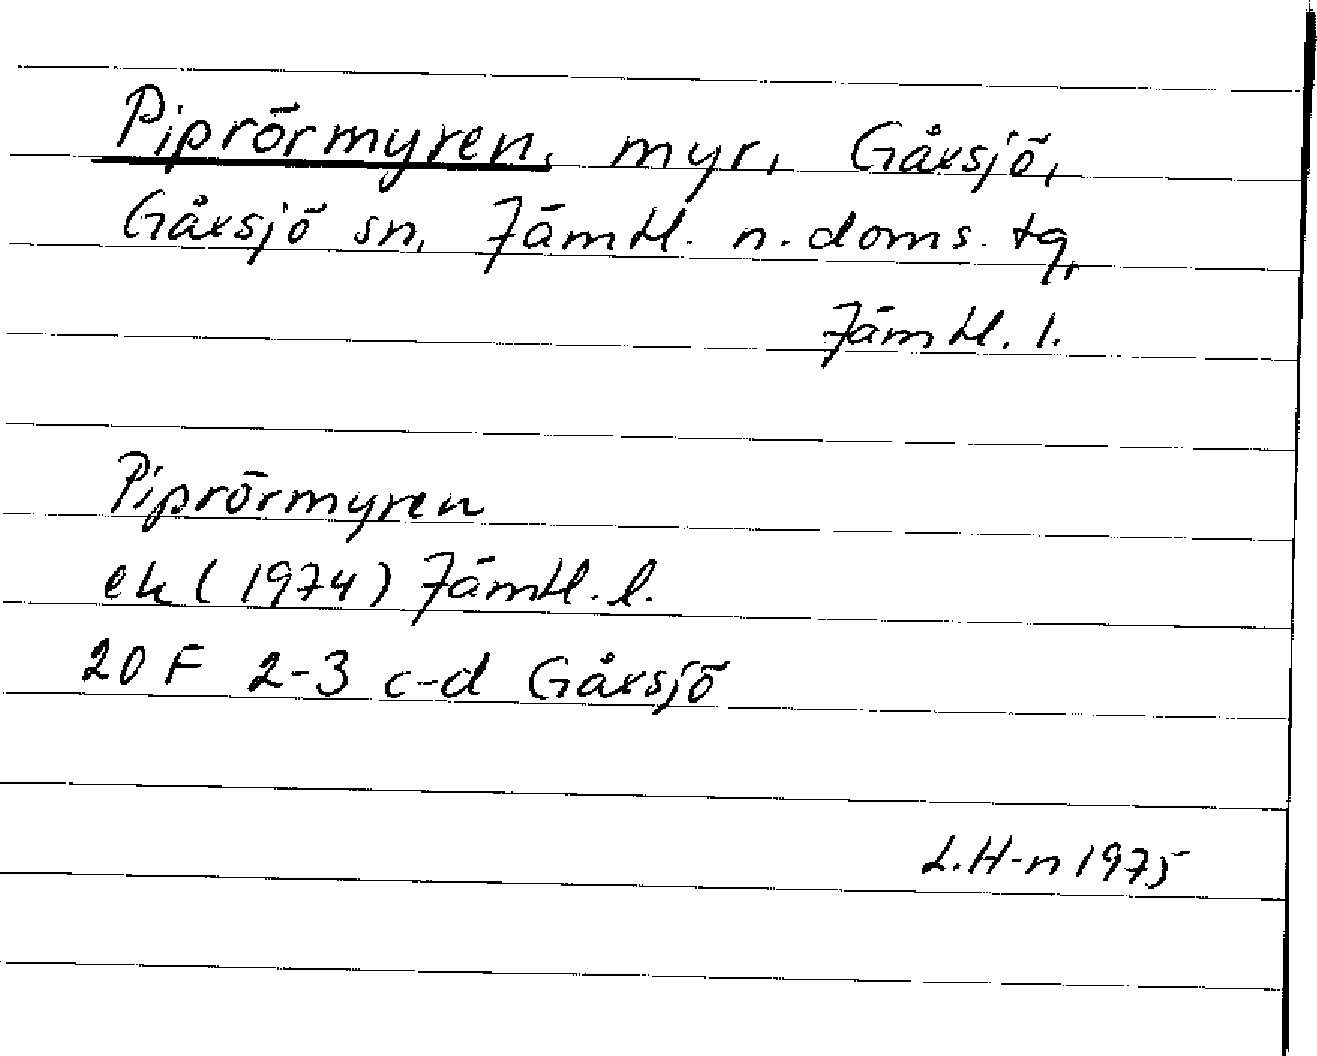 Piprörmyren, myr, Gåxsjö,
Gåxsjö sn, Jämtl. n. doms. tg,
Jämtl. l.
Piprörmyren
ek (1974) Jämtl. l.
20 F 2-3 c-d Gåxsjö
L.H-n 1975